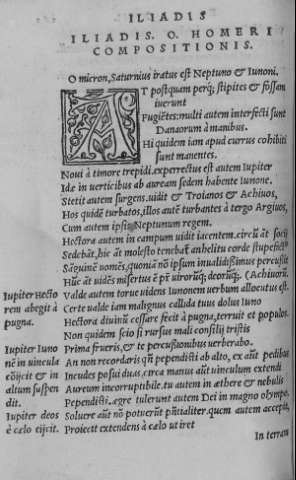 ILIADIS
ILIADIS. O. HOMERI
COMPOSITIONIS.
O micron, Saturnius iratus est Neptuno & Iunoni.
AT postquam perq; stipites & fossam
iuerunt
Fugiẽtes: multi autem interfecti sunt
Danaorum à manibus.
Hi quidem iam apud currus cohibiti
sunt manentes.
Noui à timore trepidi. experrectus est autem Iupiter
Idæ in uerticibus ab auream sedem habente Iunone.
Stetit autem surgens. uidit & Troianos & Achiuos,
Hos quidẽ turbatos, illos autẽ turbantes à tergo Argiuos,
Cum autem ipsis Neptunum regem.
Hectora autem in campum uidit iacentem. circũ aũt socij
Sedebãt, hic aũt molesto tenebat anhelitu corde stupefact9
Sãguinẽ uomẽs, quoniã nõ ipsum inualidissimus percussit
Hũc aũt uidẽs misertus ẽ pr̃ uirorũq; deorũq;. (Achiuorũ.
Valde autem torue uidens Iunonem uerbum allocutus est.
Certe ualde iam malignus callida tuus dolus Iuno
Hectora diuinũ cessare fecit à pugna, terruit & populos.
Non quidem scio si rursus mali consilij tristis
Prima frueris, & te percussionibus uerberabo.
An non recordaris qñ pependisti ab alto, ex aũt pedibus
Incudes posui duas, circa manus aũt uinculum extendi
Aureum incorruptibile. tu autem in æthere & nebulis
Pependisti. ægre tulerunt autem Dei in magno olympo.
Soluere aũt nõ potuerũt pñtialiter. quem autem accepi,
Proieci extendens à cælo ut iret
In terram
Iupiter Hecto
rem abegit à
pugna.
Iupiter Iuno
nẽ in uincula
cõijcit & in
altum suspen
dit.
Iupiter deos
è cælo eijcit.